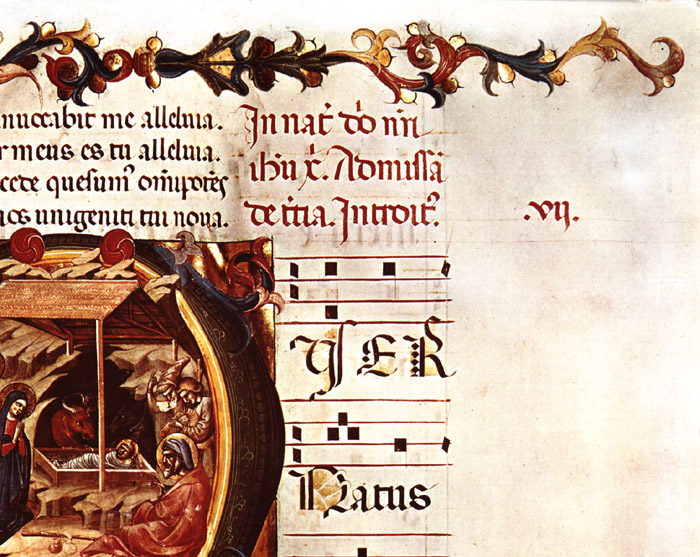 inuocabit me alleluia.
r meus es tu alleluia.
cede quesum⁹ om̅ipote̅s
nos unigeniti tui noua.
In nat̅ do̅ nr̅i
ih̅u x̅. Ad missa̅
de t̅cia. Introit⁹.
.vij.
VER
Natus